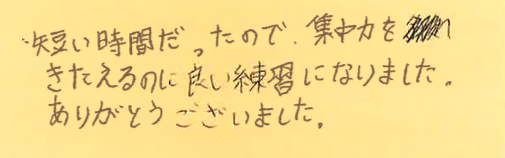 短い時間だったので、集中力を
きたえるのに良い練習になりました。
ありがとうございました。